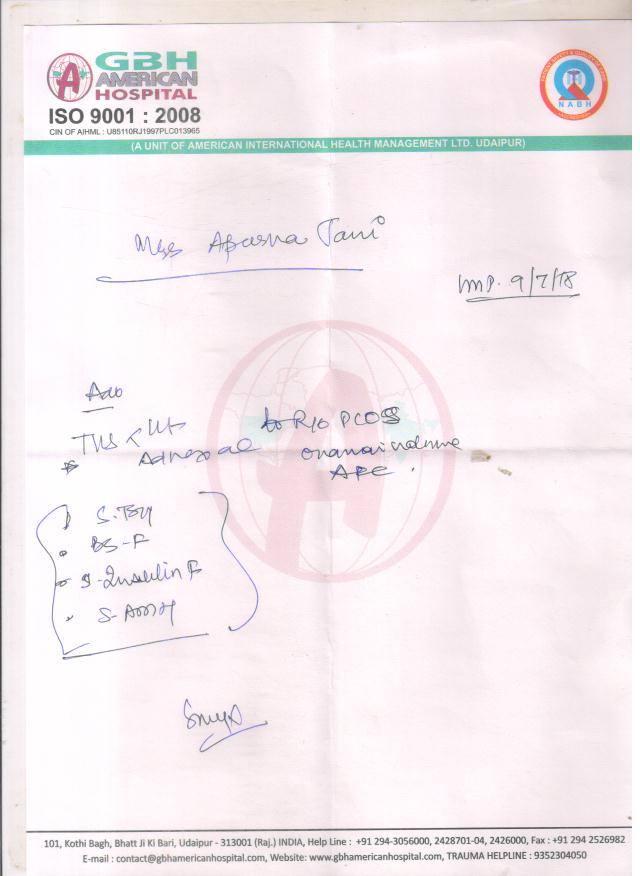 GBH
AMERICAN
HOSPITAL
ISO 9001 : 2008
CIN OF AIHML : U85110RJ1997PLC013965
NABH
(A UNIT OF AMERICAN INTERNATIONAL HEALTH MANAGEMENT LTD. UDAIPUR)
Miss Aparna
LMP. 9/7/18
Adv
TVS to R/o PCOS
Adnexal ovarian volume
AFC.
S. TSH
BS-F
S-Insulin F
S-AMH
101, Kothi Bagh, Bhatt Ji Ki Bari, Udaipur - 313001 (Raj.) INDIA, Help Line : +91 294-3056000, 2428701-04, 2426000, Fax : +91 294 2526982
E-mail : contact@gbhamericanhospital.com, Website: www.gbhamericanhospital.com, TRAUMA HELPLINE : 9352304050